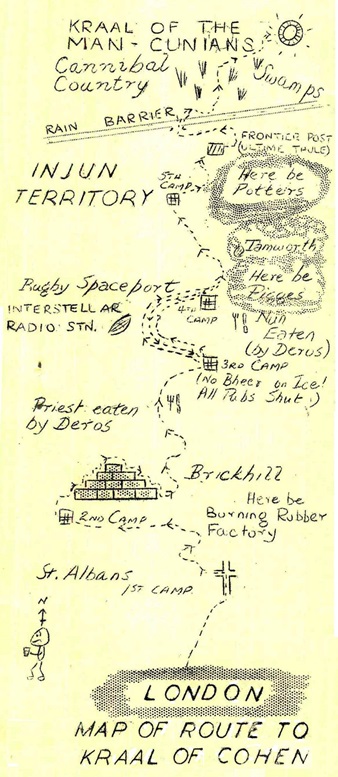 KRAAL OF THE
MAN-CUNIANS
Cannibal
Country
Swamps
RAIN BARRIER
FRONTIER POST
(ULTIME THULE)
INJUN
TERRITORY
5TH
CAMP
Here be
Potters
Tamworth
Here be
Pigges
Rugby Spaceport
INTERSTELLAR
RADIO STN.
4TH
CAMP
Nun
Eaten
(by Deros)
3RD CAMP
(No Bheer on Ice!
All Pubs Shut!)
Priest eaten
by Deros
Brickhill
Here be
Burning Rubber
Factory
2ND CAMP
St. Albans
1ST CAMP
N
LONDON
MAP OF ROUTE TO
KRAAL OF COHEN